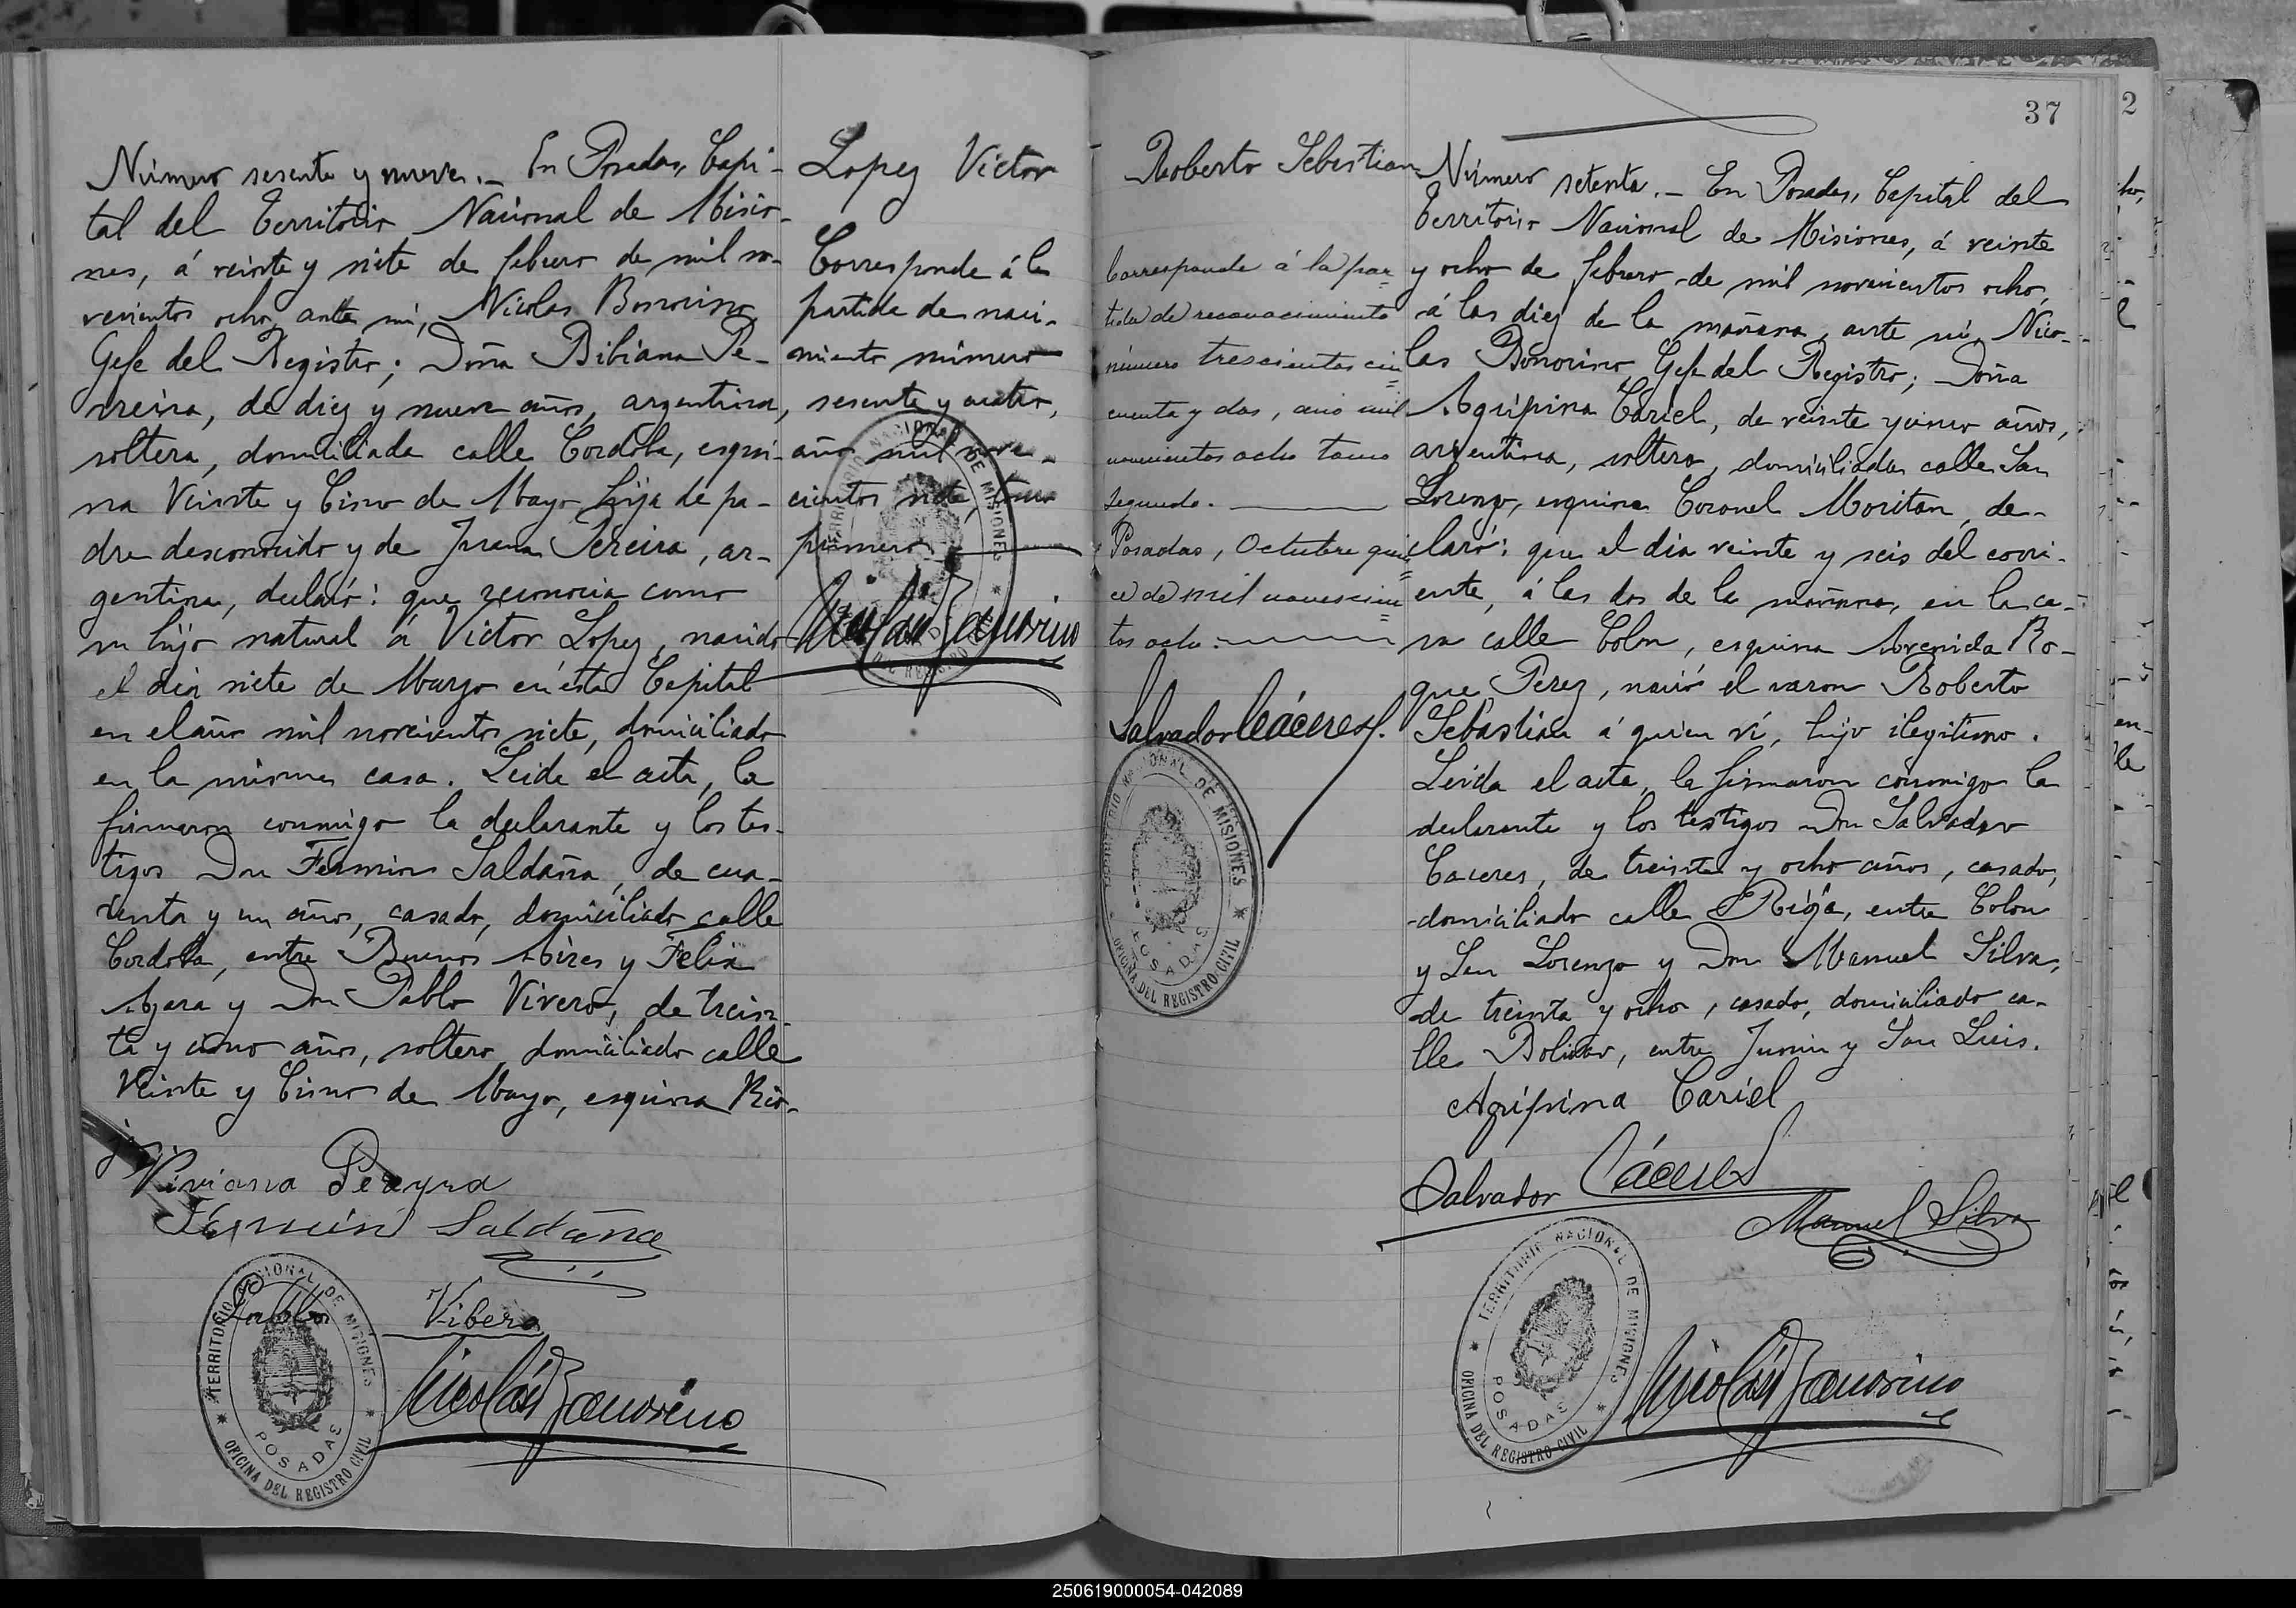 Número sesenta y nueve.- En Posadas, Capi-
tal del Territorio Nacional de Misio-
nes, á veinte y siete de febrero de mil no-
vecientos ocho, ante mí, Nicolas Bonorino,
Gefe del Registro; Doña Bibiana Pe-
reira, de diez y nueve años, argentina,
soltera, domiciliada calle Cordoba, esqui-
na Veinte y Cinco de Mayo hija de pa-
dre desconocido y de Juana Pereira, ar-
gentina, declaró: que reconocia como
su hijo natural á Victor Lopez, nacido
el dia siete de Marzo en ésta Capital
en el año mil novecientos siete, domiciliado
en la misma casa. Leida el acta, la
firmaron conmigo la declarante y los tes-
tigos Don Fermin Saldaña, de cua-
renta y un años, casado, domiciliado calle
Cordoba, entre Buenos Aires y Felix
Azara y Don Pablo Vivero, de trein-
ta y cinco años, soltero, domiciliado calle
Veinte y Cinco de Mayo, esquina Rio-
ja.
Viviana Pereyra
Fermin Saldaña
Pablo Vibero
Nicolás Bonorino
TERRITORIO NACIONAL DE MISIONES
POSADAS
OFICINA DEL REGISTRO CIVIL
Lopez Victor
Corresponde á la
partida de naci-
miento número
sesenta y cuatro,
año mil nove-
cientos siete, tomo
primero
Nicolás Bonorino
TERRITORIO NACIONAL DE MISIONES
DEL REGISTRO
37
Roberto Sebastian
Corresponde á la par
tida de reconocimiento
número trescientos cin
cuenta y dos, año mil
novecientos ocho tomo
segundo.
Posadas, Octubre quin
ce de mil novecien
tos ocho.
Salvador Cáceres.
TERRITORIO NACIONAL DE MISIONES
POSADAS
OFICINA DEL REGISTRO CIVIL
Número setenta.- En Posadas, Capital del
Territorio Nacional de Misiones, á veinte
y ocho de febrero de mil novecientos ocho,
á las diez de la mañana, ante mí, Nico-
las Bonorino, Gefe del Registro; Doña
Agripina Cariel, de veinte y cinco años,
argentina, soltera, domiciliada calle San
Lorenzo, esquina Coronel Moritan, de-
claró: que el dia veinte y seis del corri-
ente, á las dos de la mañana, en la ca-
sa calle Colon, esquina Avenida Ro-
que Perez, nació el varon Roberto
Sebastian á quien ví, hijo ilegitimo.
Leida el acta, la firmaron conmigo la
declarante y los testigos Don Salvador
Caceres, de treinta y ocho años, casado,
domiciliado calle Rioja, entre Colon
y San Lorenzo y Don Manuel Silva,
de treinta y ocho, casado, domiciliado ca-
lle Bolivar, entre Junin y San Luis.
Agripina Cariel
Salvador Cáceres
Manuel Silva
Nicolás Bonorino
TERRITORIO NACIONAL DE MISIONES
POSADAS
OFICINA DEL REGISTRO CIVIL
2
250619000054-042089